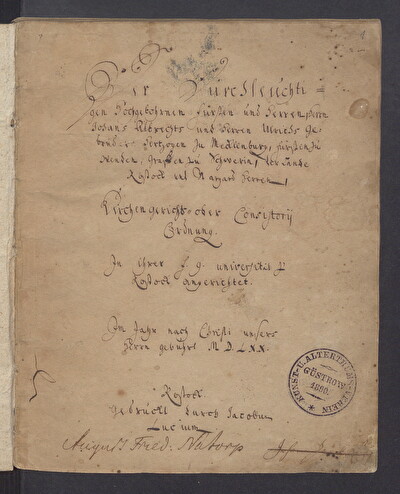 Der Durchleuchti-
gen Hochgebohrnen Fürsten und Herren, Herrn
Johans Albrechts und Herren Ulrichs Ge-
brüder Hertzogen zu Mecklenburg, Fürsten zu
Wenden, Graffen zu Schwerin, der Lande
Rostock und Stargard Herren,
Kirchengerichts- oder Consistorij
Ordnung.
In Ihrer F. G. Universitet zu
Rostock angerichtet.
Im Jahr nach Christi unsers
Herrn gebuhrt M. D. LXX.
Rostock
gedruckt durch Jacobum
Lucium
August Fried. Natorp
KUNST- U. ALTERTHUMSVEREIN
GÜSTROW
1890.